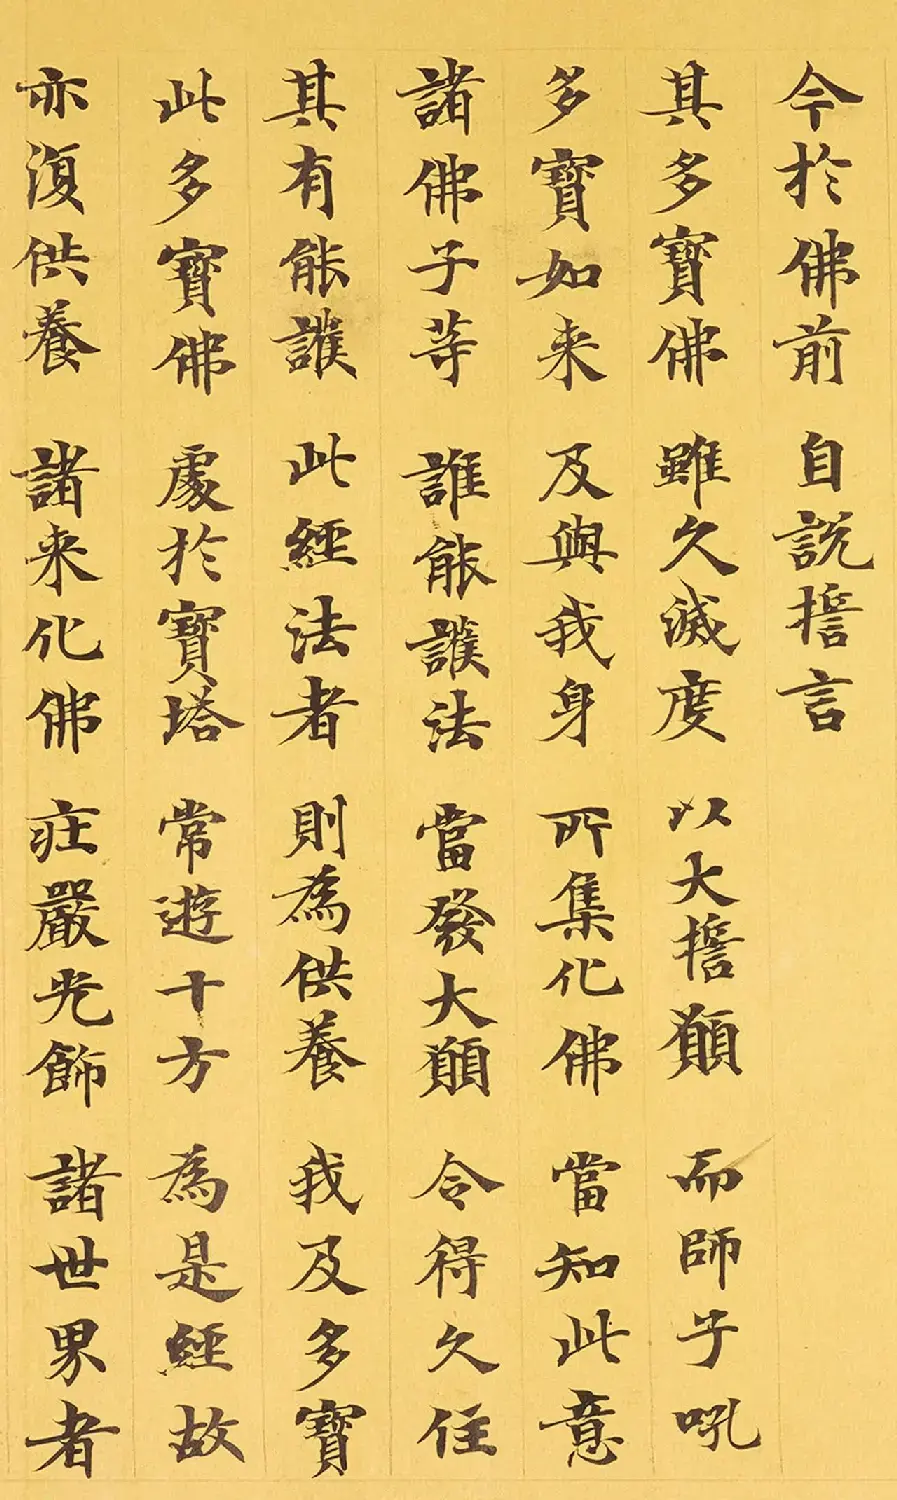 今於佛前 自説誓言
其多寶佛 雖久滅度 以大誓願 而師子吼
多寶如来 及與我身 所集化佛 當知此意
諸佛子等 誰能護法 當發大願 令得久住
其有能護 此經法者 則為供養 我及多寶
此多寶佛 處於寶塔 常遊十方 為是經故
亦復供養 諸来化佛 莊嚴光飾 諸世界者